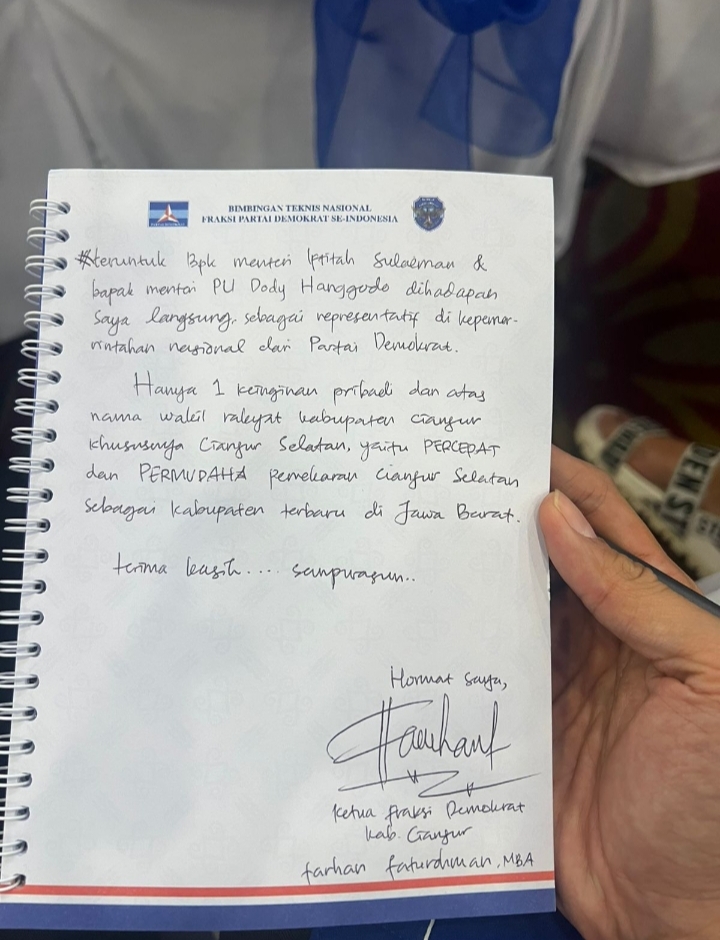 BIMBINGAN TEKNIS NASIONAL
FRAKSI PARTAI DEMOKRAT SE-INDONESIA
#teruntuk Bpk menteri Iftitah Sulaeman &
bapak menteri PU Dody Hanggodo dihadapan
saya langsung, sebagai representatif di kepemer-
rintahan nasional dari Partai Demokrat.
Hanya 1 keinginan pribadi dan atas
nama wakil rakyat kabupaten cianjur
khususnya Cianjur Selatan, yaitu PERCEPAT
dan PERMUDAHA pemekaran Cianjur Selatan
sebagai kabupaten terbaru di Jawa Barat.
terima kasih.... sampurasun..
Hormat saya,
Ketua fraksi Demokrat
Kab. Cianjur
farhan faturohman, MBA